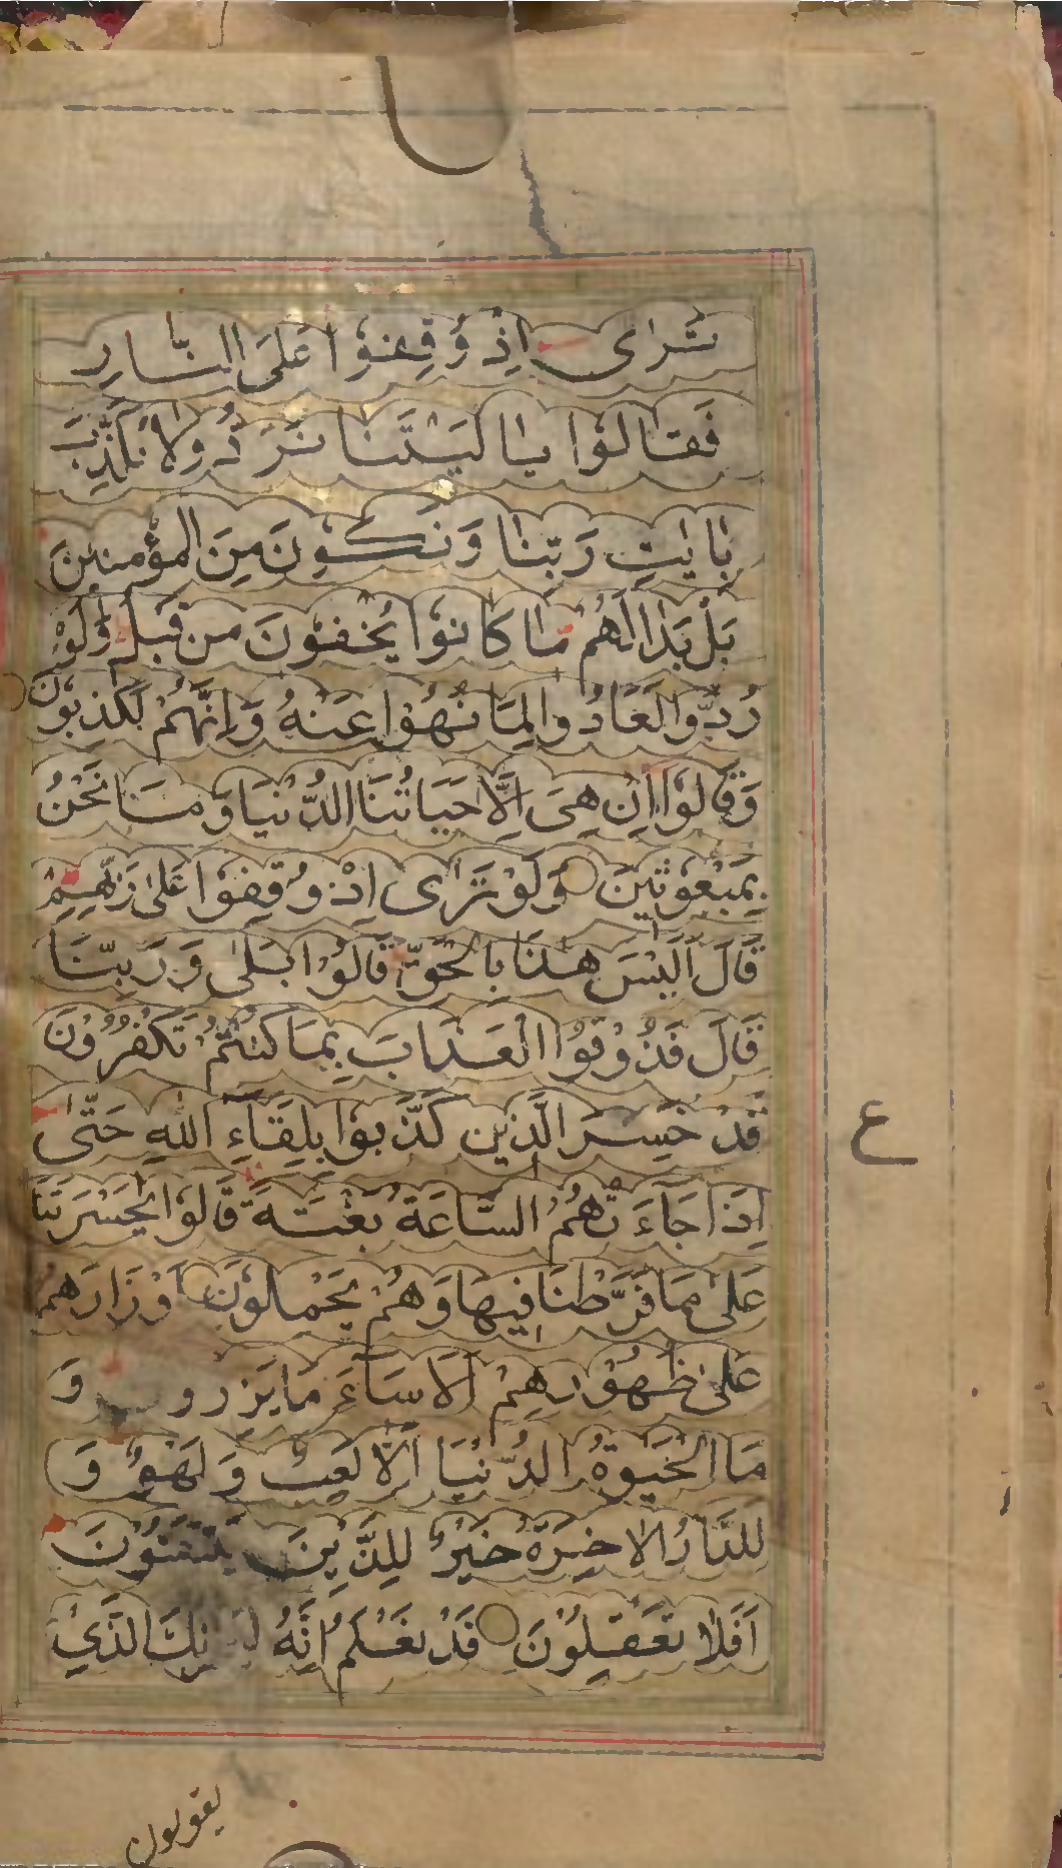 تَرٰى اِذْ وُقِفُوْا عَلَى النَّارِ
فَقَالُوْا يَا لَيْتَنَا نُرَدُّ وَلَا نُكَذِّبَ
بِاٰيٰتِ رَبِّنَا وَنَكُوْنَ مِنَ الْمُؤْمِنِيْنَ
بَلْ بَدَا لَهُمْ مَا كَانُوْا يُخْفُوْنَ مِنْ قَبْلُ وَلَوْ
رُدُّوْا لَعَادُوْا لِمَا نُهُوْا عَنْهُ وَاِنَّهُمْ لَكٰذِبُوْنَ
وَقَالُوْا اِنْ هِيَ اِلَّا حَيَاتُنَا الدُّنْيَا وَمَا نَحْنُ
بِمَبْعُوْثِيْنَ وَلَوْ تَرٰى اِذْ وُقِفُوْا عَلٰى رَبِّهِمْ
قَالَ اَلَيْسَ هٰذَا بِالْحَقِّ قَالُوْا بَلٰى وَرَبِّنَا
قَالَ فَذُوْقُوا الْعَذَابَ بِمَا كُنْتُمْ تَكْفُرُوْنَ
قَدْ خَسِرَ الَّذِيْنَ كَذَّبُوْا بِلِقَاءِ اللّٰهِ حَتّٰى
اِذَا جَاءَتْهُمُ السَّاعَةُ بَغْتَةً قَالُوْا يٰحَسْرَتَنَا
عَلٰى مَا فَرَّطْنَا فِيْهَا وَهُمْ يَحْمِلُوْنَ اَوْزَارَهُمْ
عَلٰى ظُهُوْرِهِمْ اَلَا سَاءَ مَا يَزِرُو وَ
مَا الْحَيٰوةُ الدُّنْيَا اِلَّا لَعِبٌ وَلَهْوٌ وَ
لَلدَّارُ الْاٰخِرَةُ خَيْرٌ لِلَّذِيْنَ يَتَّقُوْنَ
اَفَلَا تَعْقِلُوْنَ قَدْ نَعْلَمُ اِنَّهُ الَّذِيْ
ع
يقولون